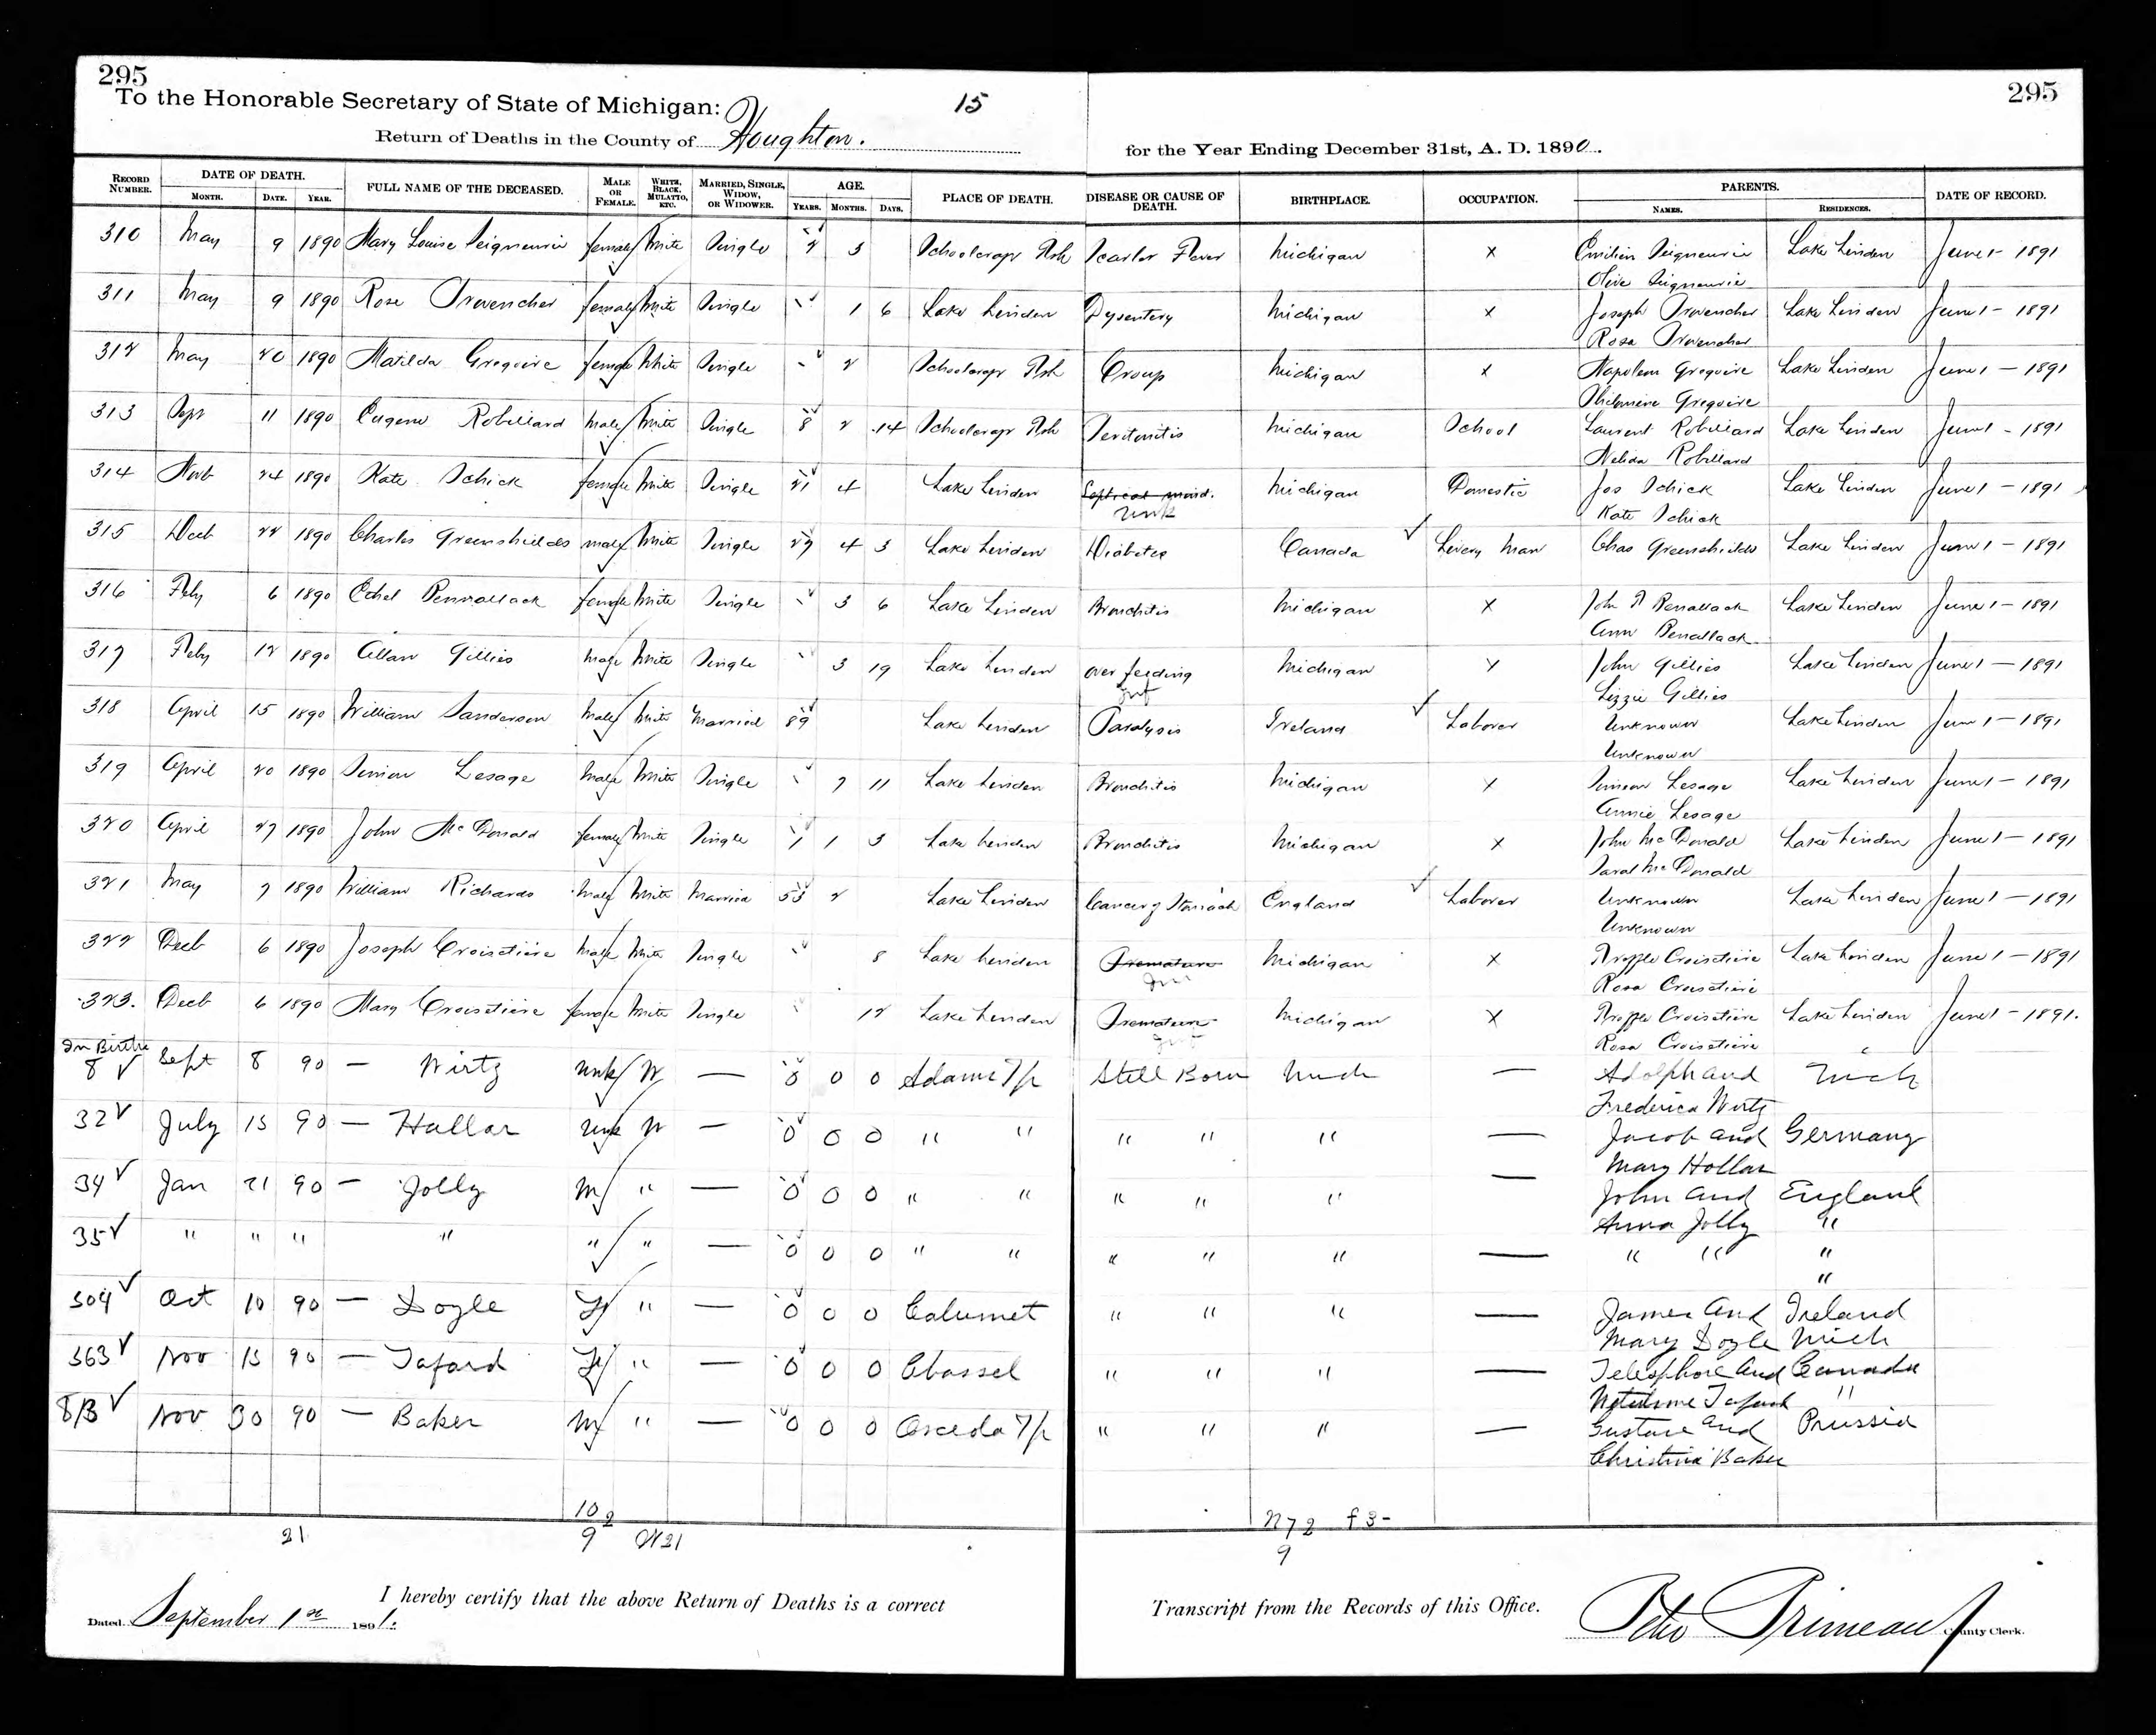 295
295
To the Honorable Secretary of State of Michigan:
15
Return of Deaths in the County of Houghton.
for the Year Ending December 31st, A. D. 1890.
RECORD NUMBER. DATE OF DEATH. MONTH. DATE. YEAR. FULL NAME OF THE DECEASED. MALE OR FEMALE. WHITE, BLACK, MULATTO, ETC. MARRIED, SINGLE, WIDOW, OR WIDOWER. AGE. YEARS. MONTHS. DAYS. PLACE OF DEATH. DISEASE OR CAUSE OF DEATH. BIRTHPLACE. OCCUPATION. PARENTS. NAMES. RESIDENCES. DATE OF RECORD.
310 May 9 1890 Mary Louise Seigneurie female White Single 2 3 Schoolcraft Tsh Scarlet Fever Michigan x Emilien Seigneurie Lake Linden June 1 - 1891
Olive Seigneurie
311 May 9 1890 Rose Provencher female White Single 1 6 Lake Linden Dysentery Michigan x Joseph Provencher Lake Linden June 1 - 1891
Rosa Provencher
312 May 20 1890 Matilda Gregoire female White Single 2 Schoolcraft Tsh Croup Michigan x Napoleon Gregoire Lake Linden June 1 - 1891
Philomene Gregoire
313 Sept 11 1890 Eugene Robillard male White Single 8 2 14 Schoolcraft Tsh Peritonitis Michigan School Laurent Robillard Lake Linden June 1 - 1891
Melida Robillard
314 Novb 24 1890 Kate Schick female White Single 21 4 Lake Linden Michigan Domestic Jos Schick Lake Linden June 1 - 1891
unk Kate Schick
315 Decb 22 1890 Charles Greenshields male White Single 27 4 3 Lake Linden Diabetes Canada Livery Man Chas Greenshields Lake Linden June 1 - 1891
316 Feby 6 1890 Ethel Penrallack female White Single 3 6 Lake Linden Bronchitis Michigan x John Penallack Lake Linden June 1 - 1891
Ann Penallack
317 Feby 12 1890 Allan Gillies Male White Single 3 19 Lake Linden over feeding Michigan x John Gillies Lake Linden June 1 - 1891
Inf Lizzie Gillies
318 April 15 1890 William Sanderson Male White Married 89 Lake Linden Paralysis Ireland Laborer Unknown Lake Linden June 1 - 1891
Unknown
319 April 20 1890 Simeon Lesage Male White Single 7 11 Lake Linden Bronchitis Michigan x Simeon Lesage Lake Linden June 1 - 1891
Annie Lesage
320 April 27 1890 John McDonald female White Single 1 1 3 Lake Linden Bronchitis Michigan x John McDonald Lake Linden June 1 - 1891
Sarah McDonald
321 May 7 1890 William Richards Male White Married 53 2 Lake Linden Cancer of Stomach England Laborer Unknown Lake Linden June 1 - 1891
Unknown
322 Decb 6 1890 Joseph Croisetiere Male White Single 8 Lake Linden Premature Michigan x Croisetiere Lake Linden June 1 - 1891
Inf Rosa Croisetiere
323. Decb 6 1890 Mary Croisetiere female White Single 12 Lake Linden Premature Michigan x Croisetiere Lake Linden June 1 - 1891.
Inf Rosa Croisetiere
In Births
8 Sept 8 90 — Wirtz unk W — 0 0 0 Adams T/p Still Born Mich — Adolph and Mich
Frederica Wirtz
32 July 15 90 — Hollar unk W — 0 0 0 " " " " " — Jacob and Germany
Mary Hollar
34 Jan 21 90 — Jolly M " — 0 0 0 " " " " " — John and England
Anna Jolly "
35 " " " " " " — 0 0 0 " " " " " — " " "
"
504 Oct 10 90 — Doyle F " — 0 0 0 Calumet " " " — James and Ireland
Mary Doyle Mich
563 Nov 15 90 — Taford F " — 0 0 0 Chassel " " " — Telesphore and Canada
Taford "
813 Nov 30 90 — Baker M " — 0 0 0 Osceola T/p " " " — Gustave and Prussia
Christina Baker
10 2
21 9 W 21
N 7 2 f 3 -
9
I hereby certify that the above Return of Deaths is a correct
Transcript from the Records of this Office.
Dated September 1st 1891.
Peter Primeau County Clerk.